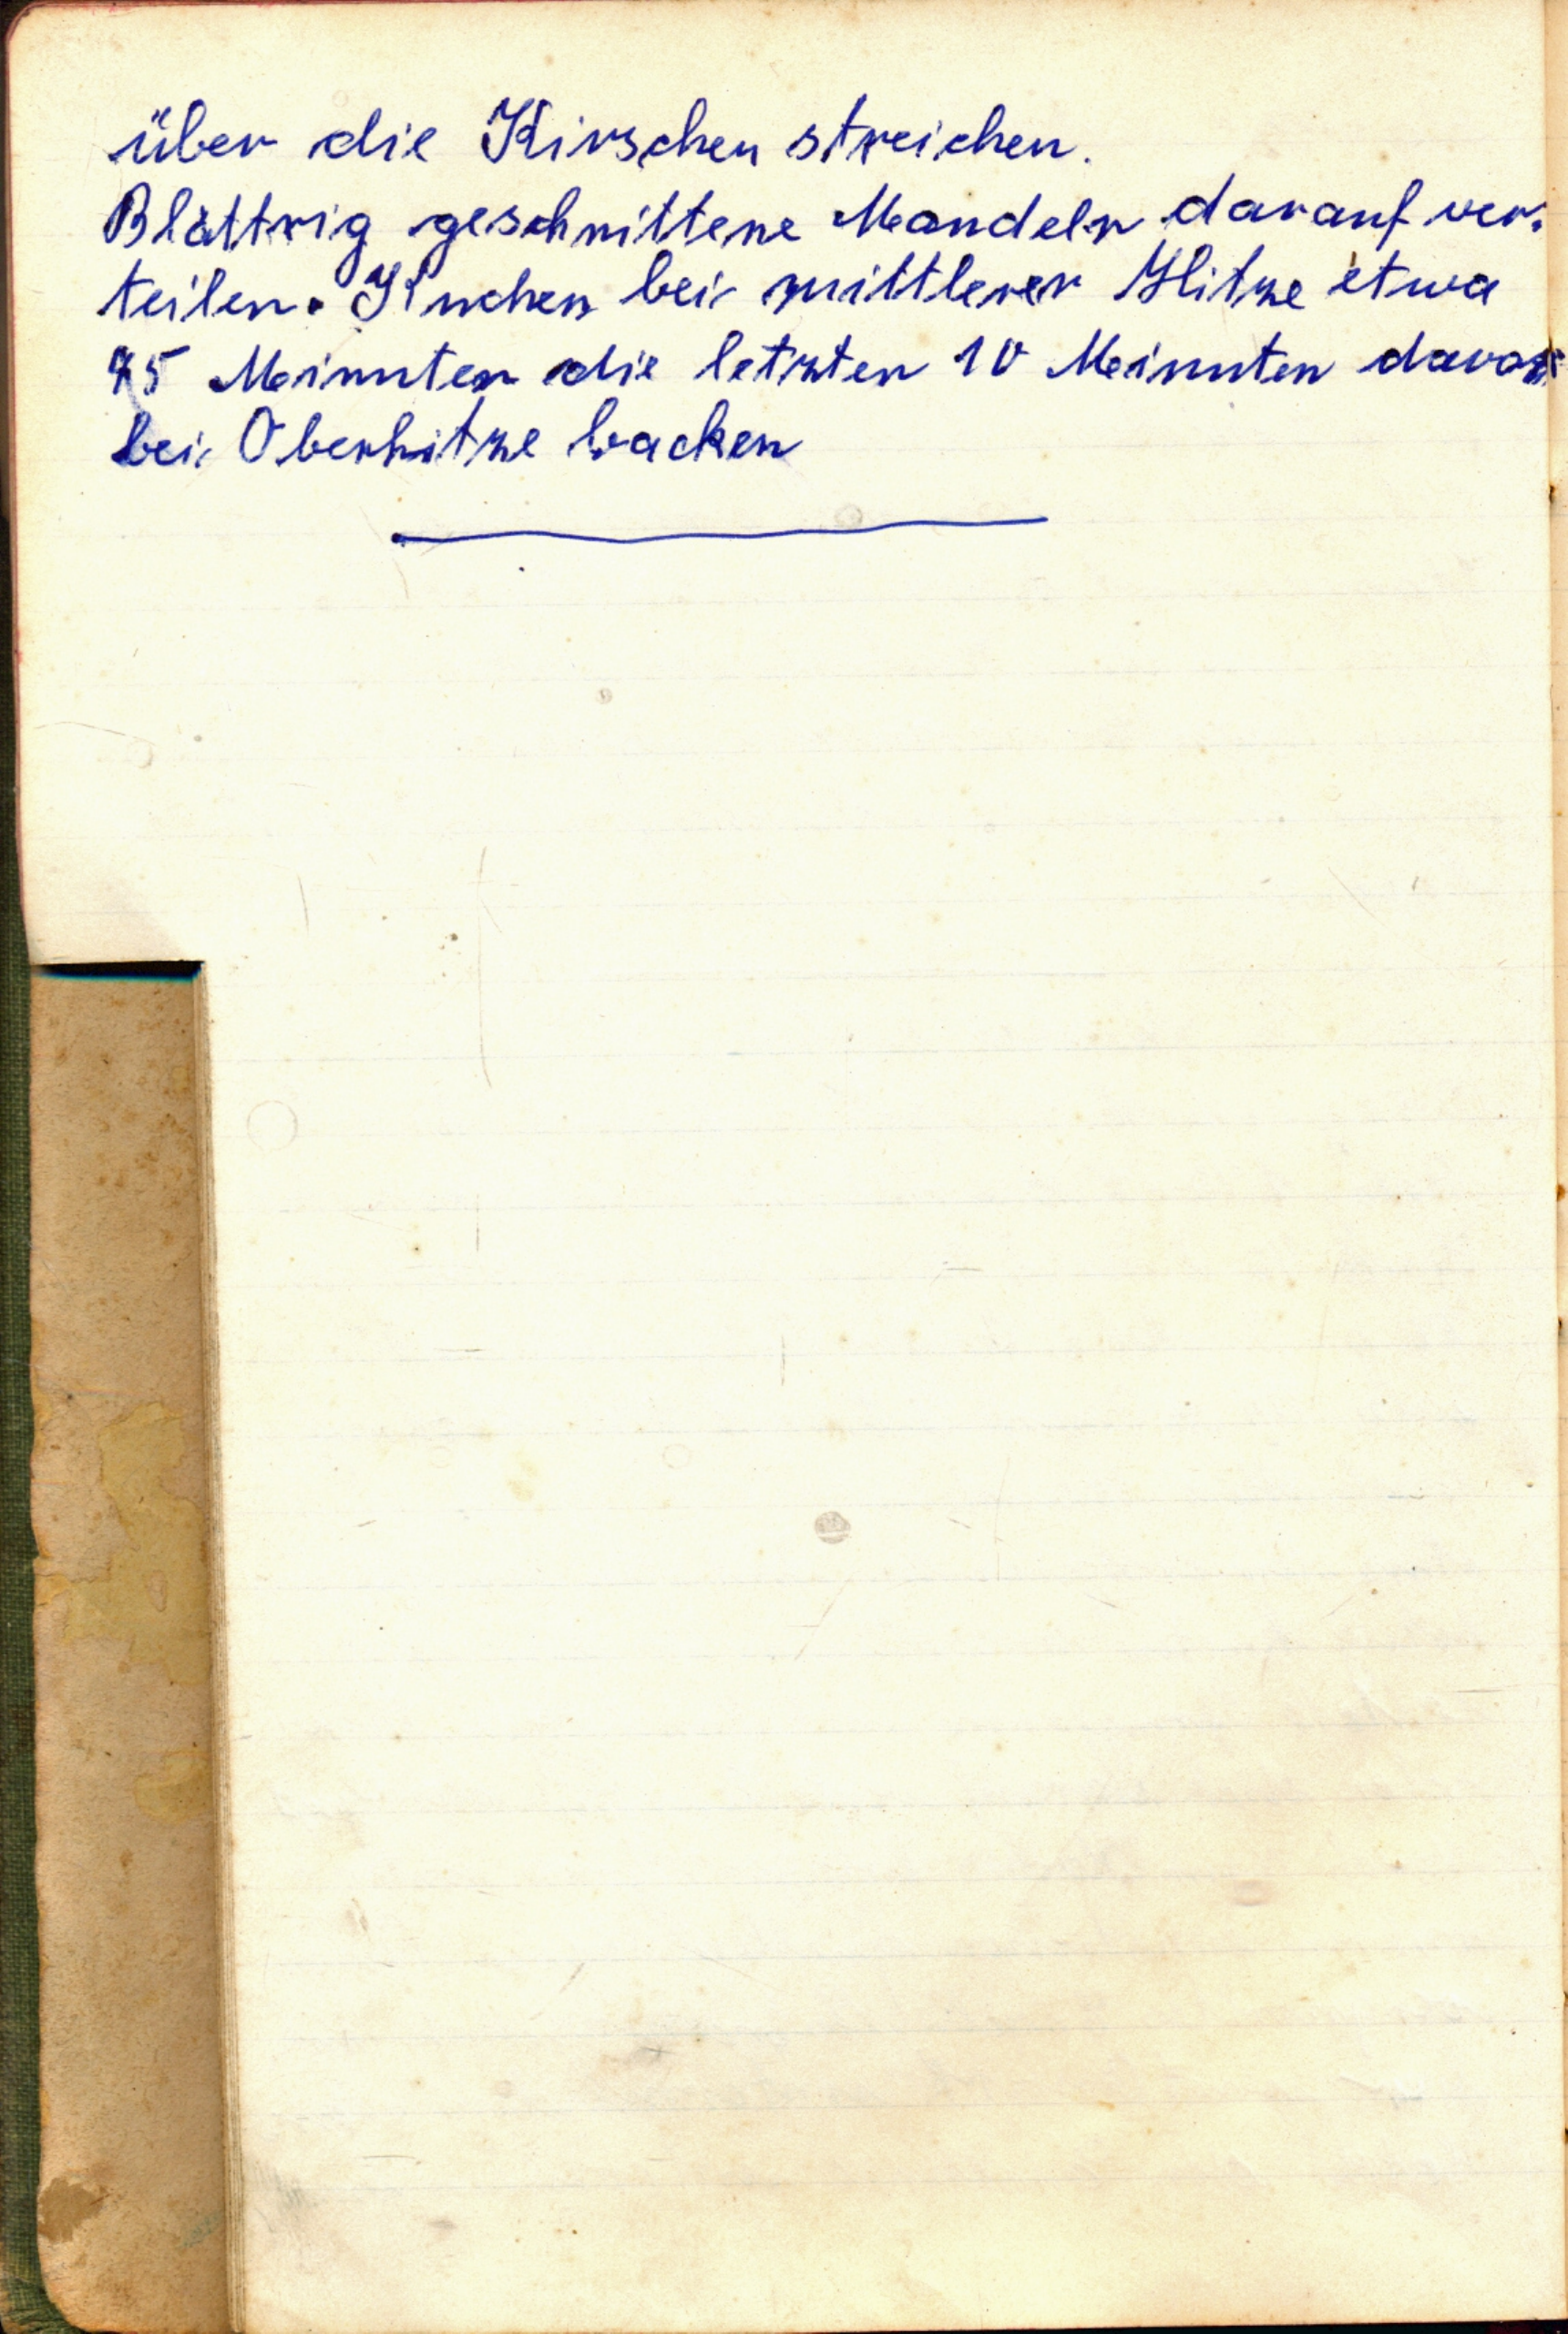 über die Kirschen streichen.
Blättrig geschnittene Mandeln darauf ver-
teilen. Kuchen bei mittlerer Hitze etwa
45 Minuten die letzten 10 Minuten davon
bei Oberhitze backen